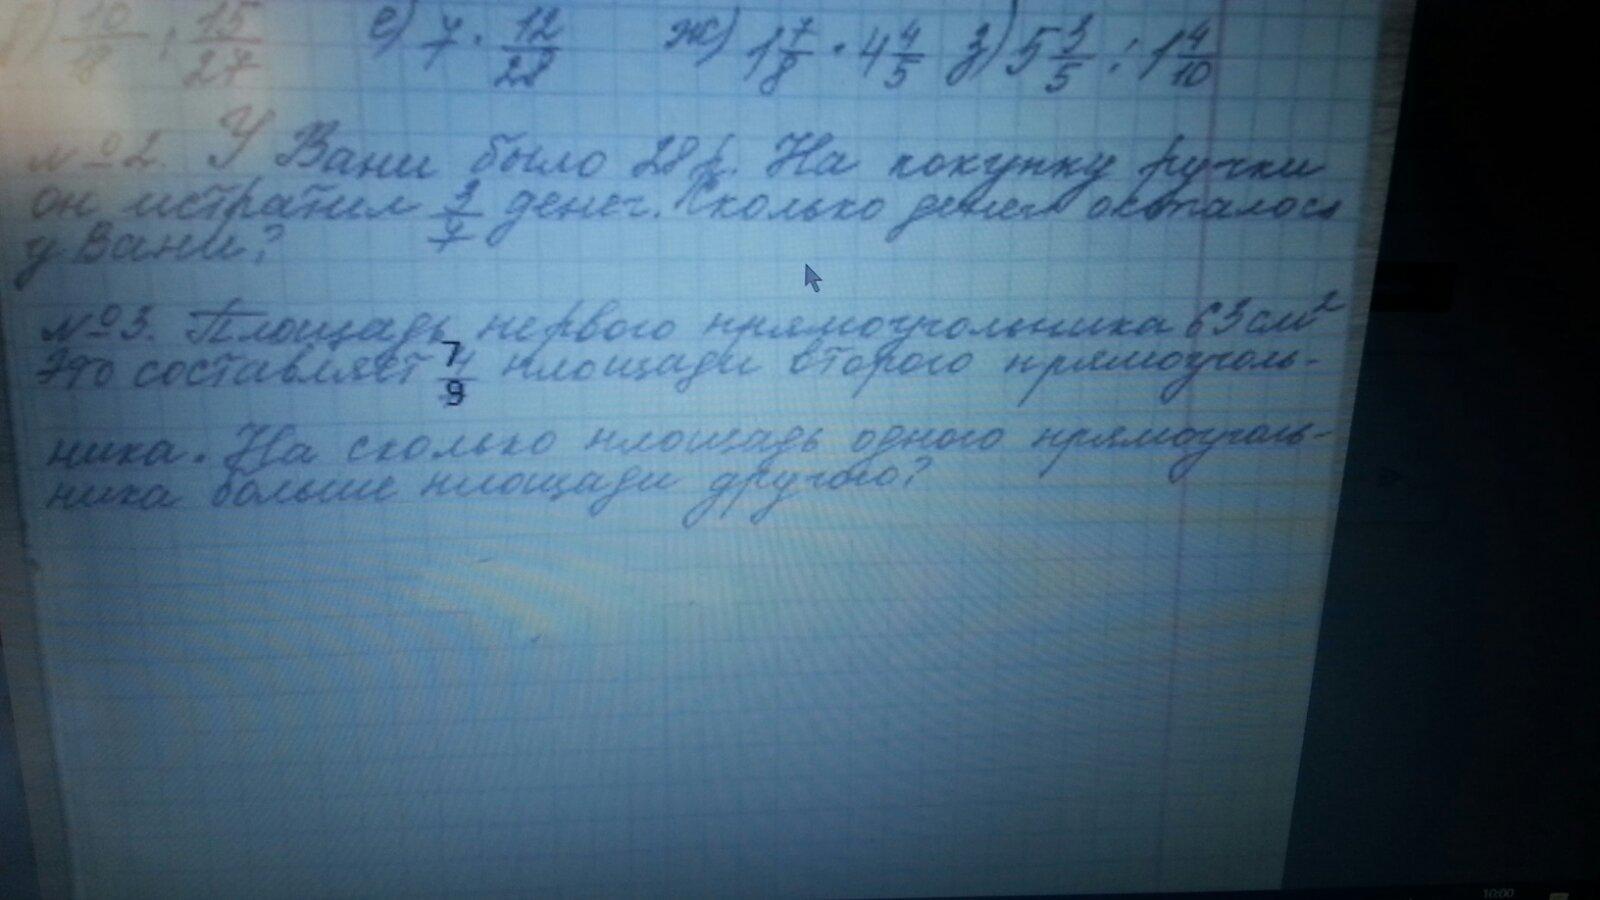 10/18 : 15/27 е) 7/7 · 12/28 ж) 1 7/8 · 4 4/5 з) 5 3/5 : 1 4/10
№2. У Вани было 28 р. На покупку ручки
он истратил /7 денег. Сколько денег осталось
у Вани?
№3. Площадь первого прямоугольника 63 см²
Это составляет 7/9 площади второго прямоуголь-
ника. На сколько площадь одного прямоуголь-
ника больше площади другого?
10:00